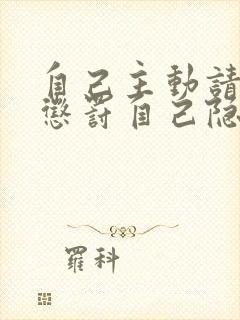 自己主動請
懲罰自己隐
羅科